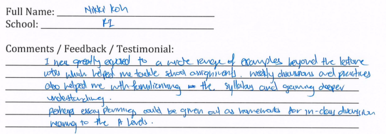 Full Name: Nicole Koh
School: RI
Comments / Feedback / Testimonial:
I was greatly exposed to a wide range of examples beyond the lecture
notes which helped me tackle school assignments. Weekly discussions and practices
also helped me with familiarising the syllabus and gaining deeper
understanding.
Perhaps essay planning could be given out as homework for in-class discussion
nearing to the A Levels.